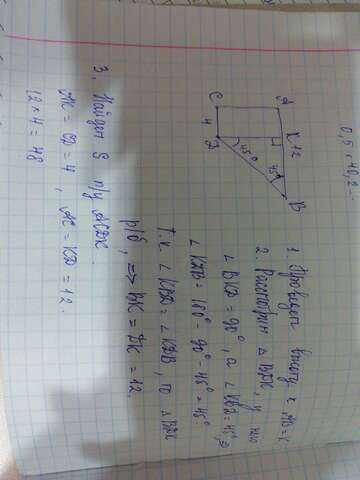 0,5 × 10,2
A
K 12
B
45°
45°
C
4
D
1. Проведем высоту к AB = K
2. Рассмотрим △ BDK, у нее
∠ BKD = 90°, а ∠ KBD = 45° ⇒
∠ KDB = 180° - 90° - 45° = 45°.
Т.к. ∠ KBD = ∠ KDB, то △ BDK
р/б, ⇒ BK = DK = 12.
3. Найдем S п/у ACDK.
AK = CD = 4, AC = KD = 12.
12 × 4 = 48